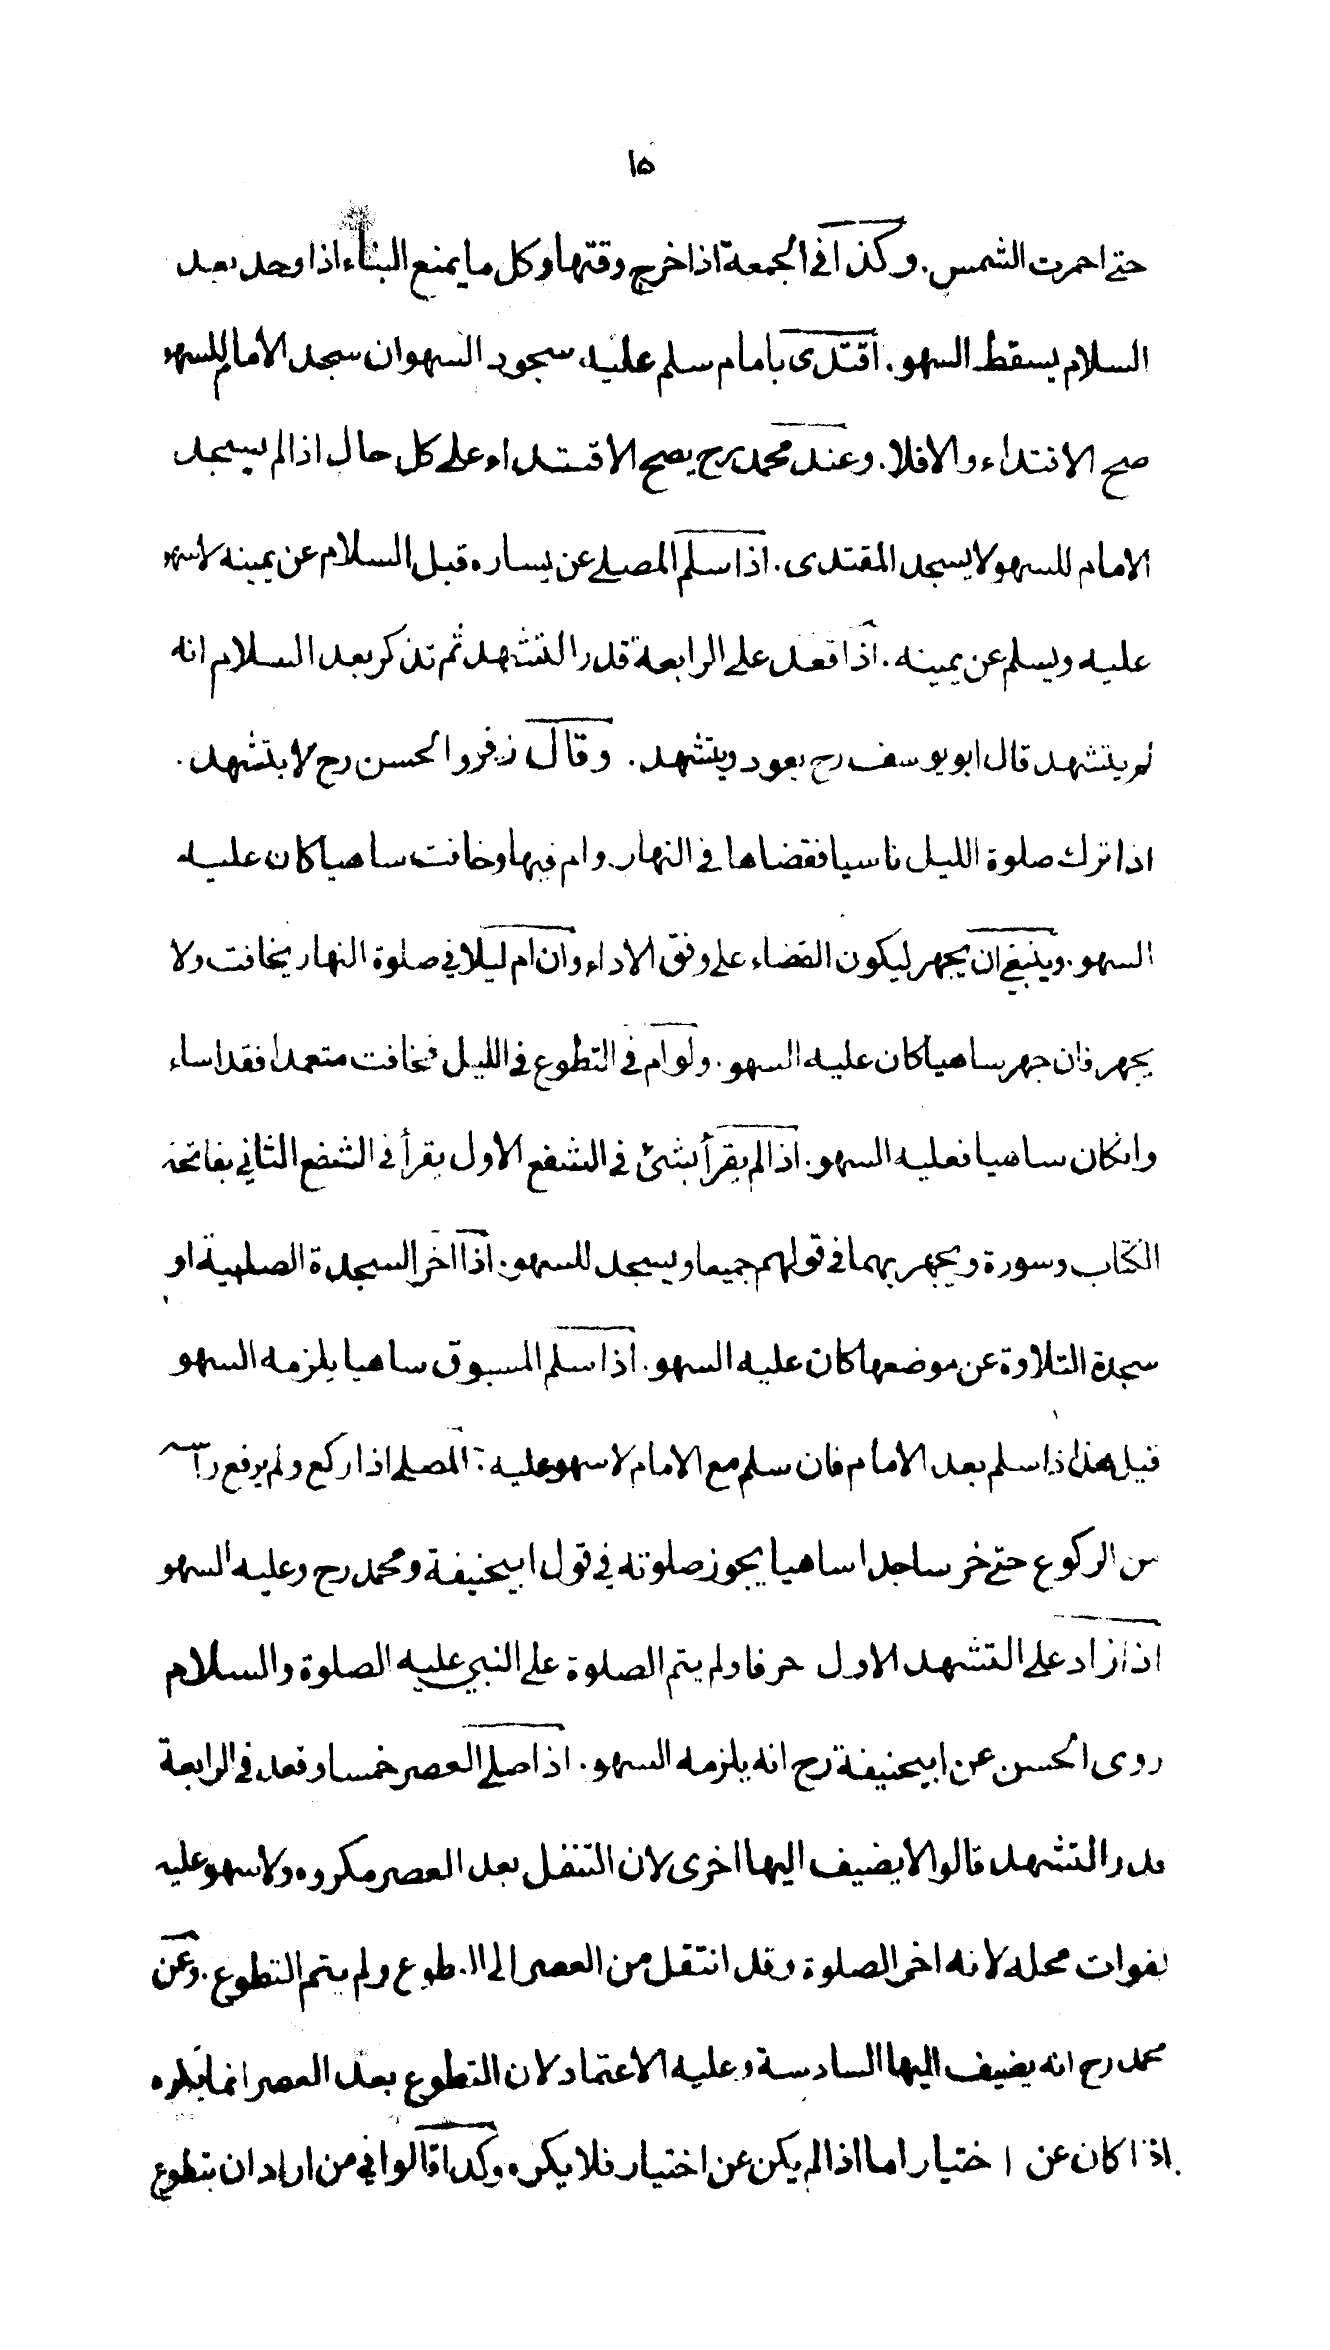 ١٥
حتى احمرت الشمس. وكذا في الجمعة اذا خرج وقتها وكل ما يمنع البناء اذا وجد بعد
السلام يسقط السهو. اقتدى بامام سلم عليه سجود السهو ان سجد الامام للسهو
صح الاقتداء والا فلا. وعند محمد رح يصح الاقتداء على كل حال اذا لم يسجد
الامام للسهو لا يسجد المقتدى. اذا سلم المصلى عن يساره قبل السلام عن يمينه لا سهو
عليه ويسلم عن يمينه. اذا قعد على الرابعة قدر التشهد ثم تذكر بعد السلام انه
لم يتشهد قال ابو يوسف رح يعود ويتشهد. وقال زفر والحسن رح لا يتشهد.
اذا ترك صلوة الليل ناسيا فقضاها في النهار وام فيها وخافت ساهيا كان عليه
السهو. وينبغى ان يجهر ليكون القضاء على وفق الاداء وان ام ليلا في صلوة النهار يخافت ولا
يجهر فان جهر ساهيا كان عليه السهو. ولو ام في التطوع في الليل فخافت متعمدا فقد اساء
وان كان ساهيا فعليه السهو. اذا لم يقرأ بشئ في الشفع الاول يقرأ في الشفع الثاني بفاتحة
الكتاب وسورة ويجهر بهما في قولهم جميعا ويسجد للسهو. اذا اخر السجدة الصلبية او
سجدة التلاوة عن موضعها كان عليه السهو. اذا سلم المسبوق ساهيا يلزمه السهو
قيل هذا اذا سلم بعد الامام فان سلم مع الامام لا سهو عليه. المصلى اذا ركع ولم يرفع رأسه
من الركوع حتى خر ساجدا ساهيا يجوز صلوته في قول ابيحنيفة ومحمد رح وعليه السهو
اذا زاد على التشهد الاول حرفا ولم يتم الصلوة على النبي عليه الصلوة والسلام
روى الحسن عن ابيحنيفة رح انه يلزمه السهو. اذا صلى العصر خمسا وقعد في الرابعة
قدر التشهد قالوا لا يضيف اليها اخرى لان التنفل بعد العصر مكروه ولا سهو عليه
لفوات محله لانه اخر الصلوة وقد انتقل من العصر الى التطوع ولم يتم التطوع. وعن
محمد رح انه يضيف اليها السادسة وعليه الاعتماد لان التطوع بعد العصر انما يكره
اذا كان عن اختيار اما اذا لم يكن عن اختيار فلا يكره وكذا قالوا في من اراد ان يتطوع